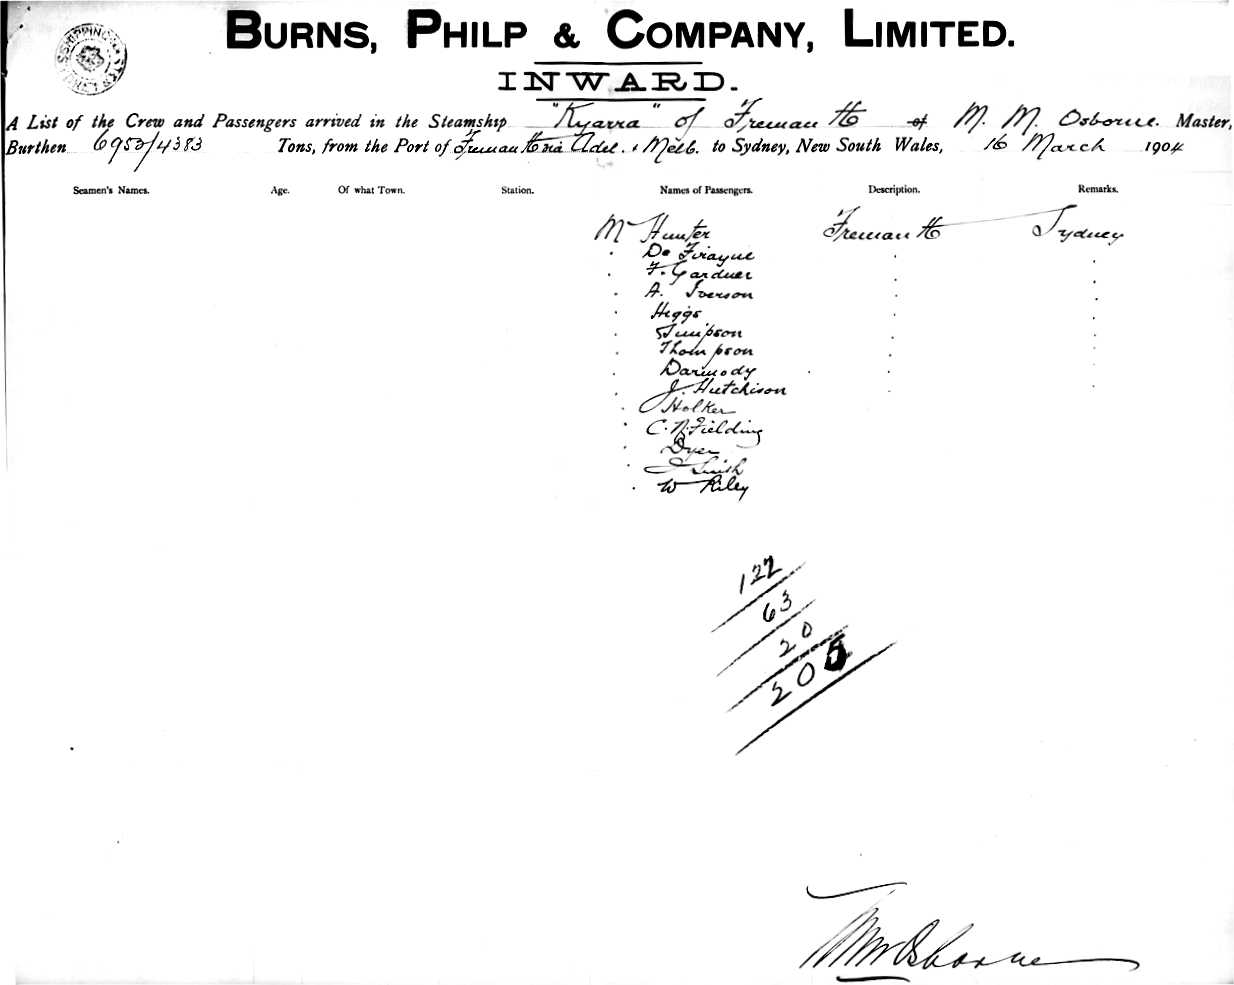 SHIPPING MASTER
BURNS, PHILP & COMPANY, LIMITED.
INWARD.
A List of the Crew and Passengers arrived in the Steamship "Kyarra" of Fremantle of M. M. Osborne. Master,
Burthen 6953/4383 Tons, from the Port of Fremantle via Adel. & Melb. to Sydney, New South Wales, 16 March 1904
Seamen's Names. Age. Of what Town. Station. Names of Passengers. Description. Remarks.
Mr Hunter Fremantle Sydney
De
F. Gardner
A. Iverson
Higgs
Simpson
Thompson
Darmody
J. Hutchison
Holker
C. N. Fielding
Dyer
J Smith
W Riley
122
63
20
205
Osborne